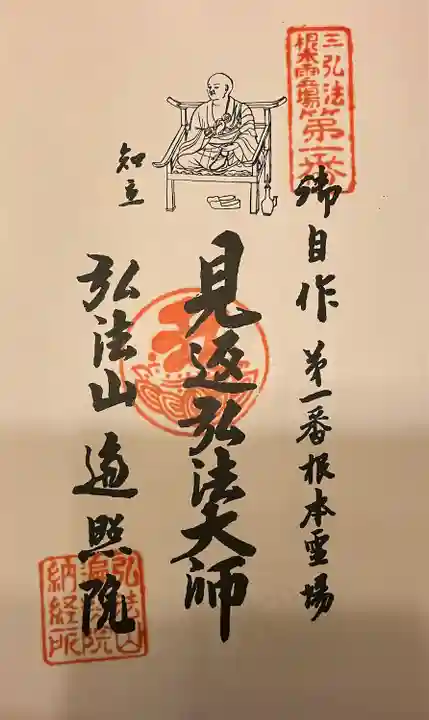 三弘法
根本霊場
第一番
御自作 第一番根本霊場
見返弘法大師
知立
弘法山 遍照院
弘法山
遍照院
納経所